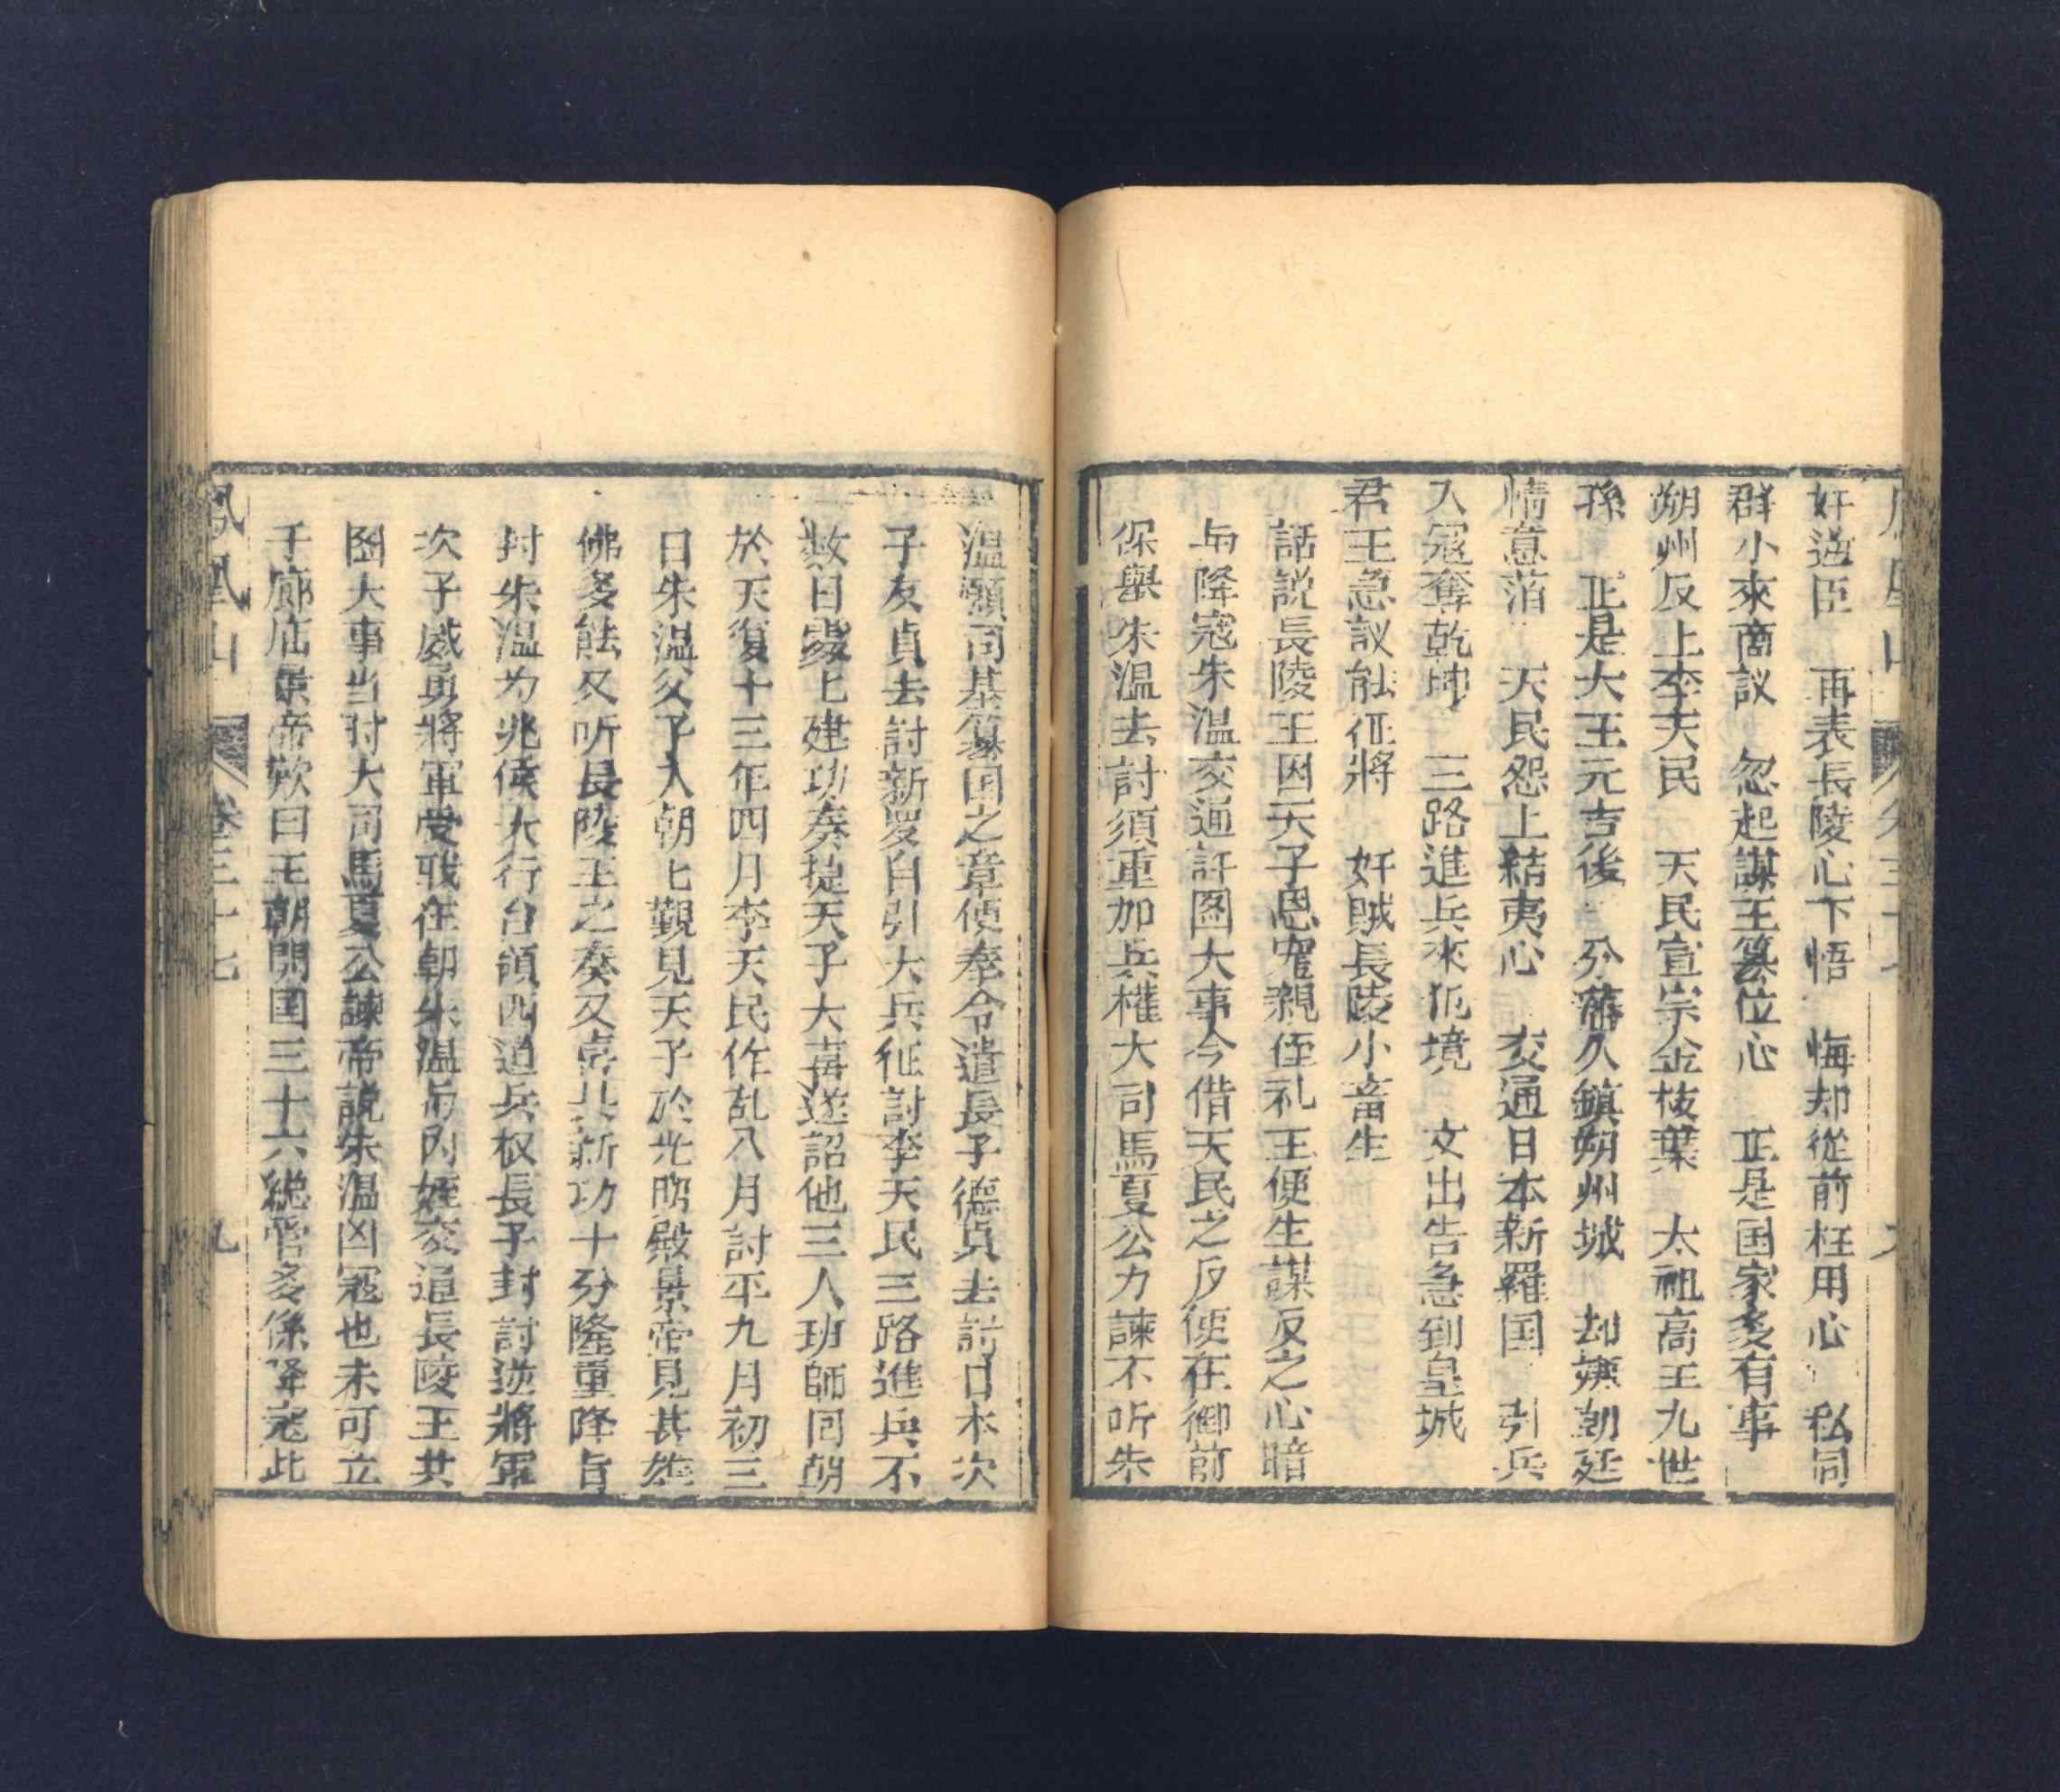 奸逆臣　再表長陵心下悟　悔却從前枉用心　私同
群小來商議　忽起謀王篡位心　正是国家多有事
朔州反上李天民　天民宣宗金枝葉　太祖高王九世
孫　正是大王元吉後　分藩久鎮朔州城　却嫌朝廷
情意萡　天民怨上結夷心　交通日本新羅国　引兵
入冦奪乾坤　三路進兵來犯境　文出告急到皇城
君王急议能征將　奸賊長陵小畜生
話説長陵王因天子恩寵親侄礼王便生謀反之心暗
与降寇朱温交通訐图大事今借天民之反便在御前
保舉朱温去討須重加兵權大司馬夏公力諫不听朱
温顯司基篡国之章便奉令遣長子德貞去討日本次
子友貞去討新罗自引大兵征討李天民三路進兵不
数日夛匕建功奏捷天子大喜遂詔他三人班師回朝
於天復十三年四月李天民作乱八月討平九月初三
日朱温父子入朝匕覲見天子於光明殿景帝見其雄
佛多能又听長陵王之奏又喜其新功十分隆重降旨
封朱温为兆侯大行台領四道兵权長子封討逆將軍
次子威勇將軍受戢在朝朱温与内姪交通長陵王共
图大事当时大司馬夏公諫帝説朱温凶冦也未可立
于廊庙景帝歎曰王朝開国三十六總管多係降寇此
鳳凰山　卷三十七　九